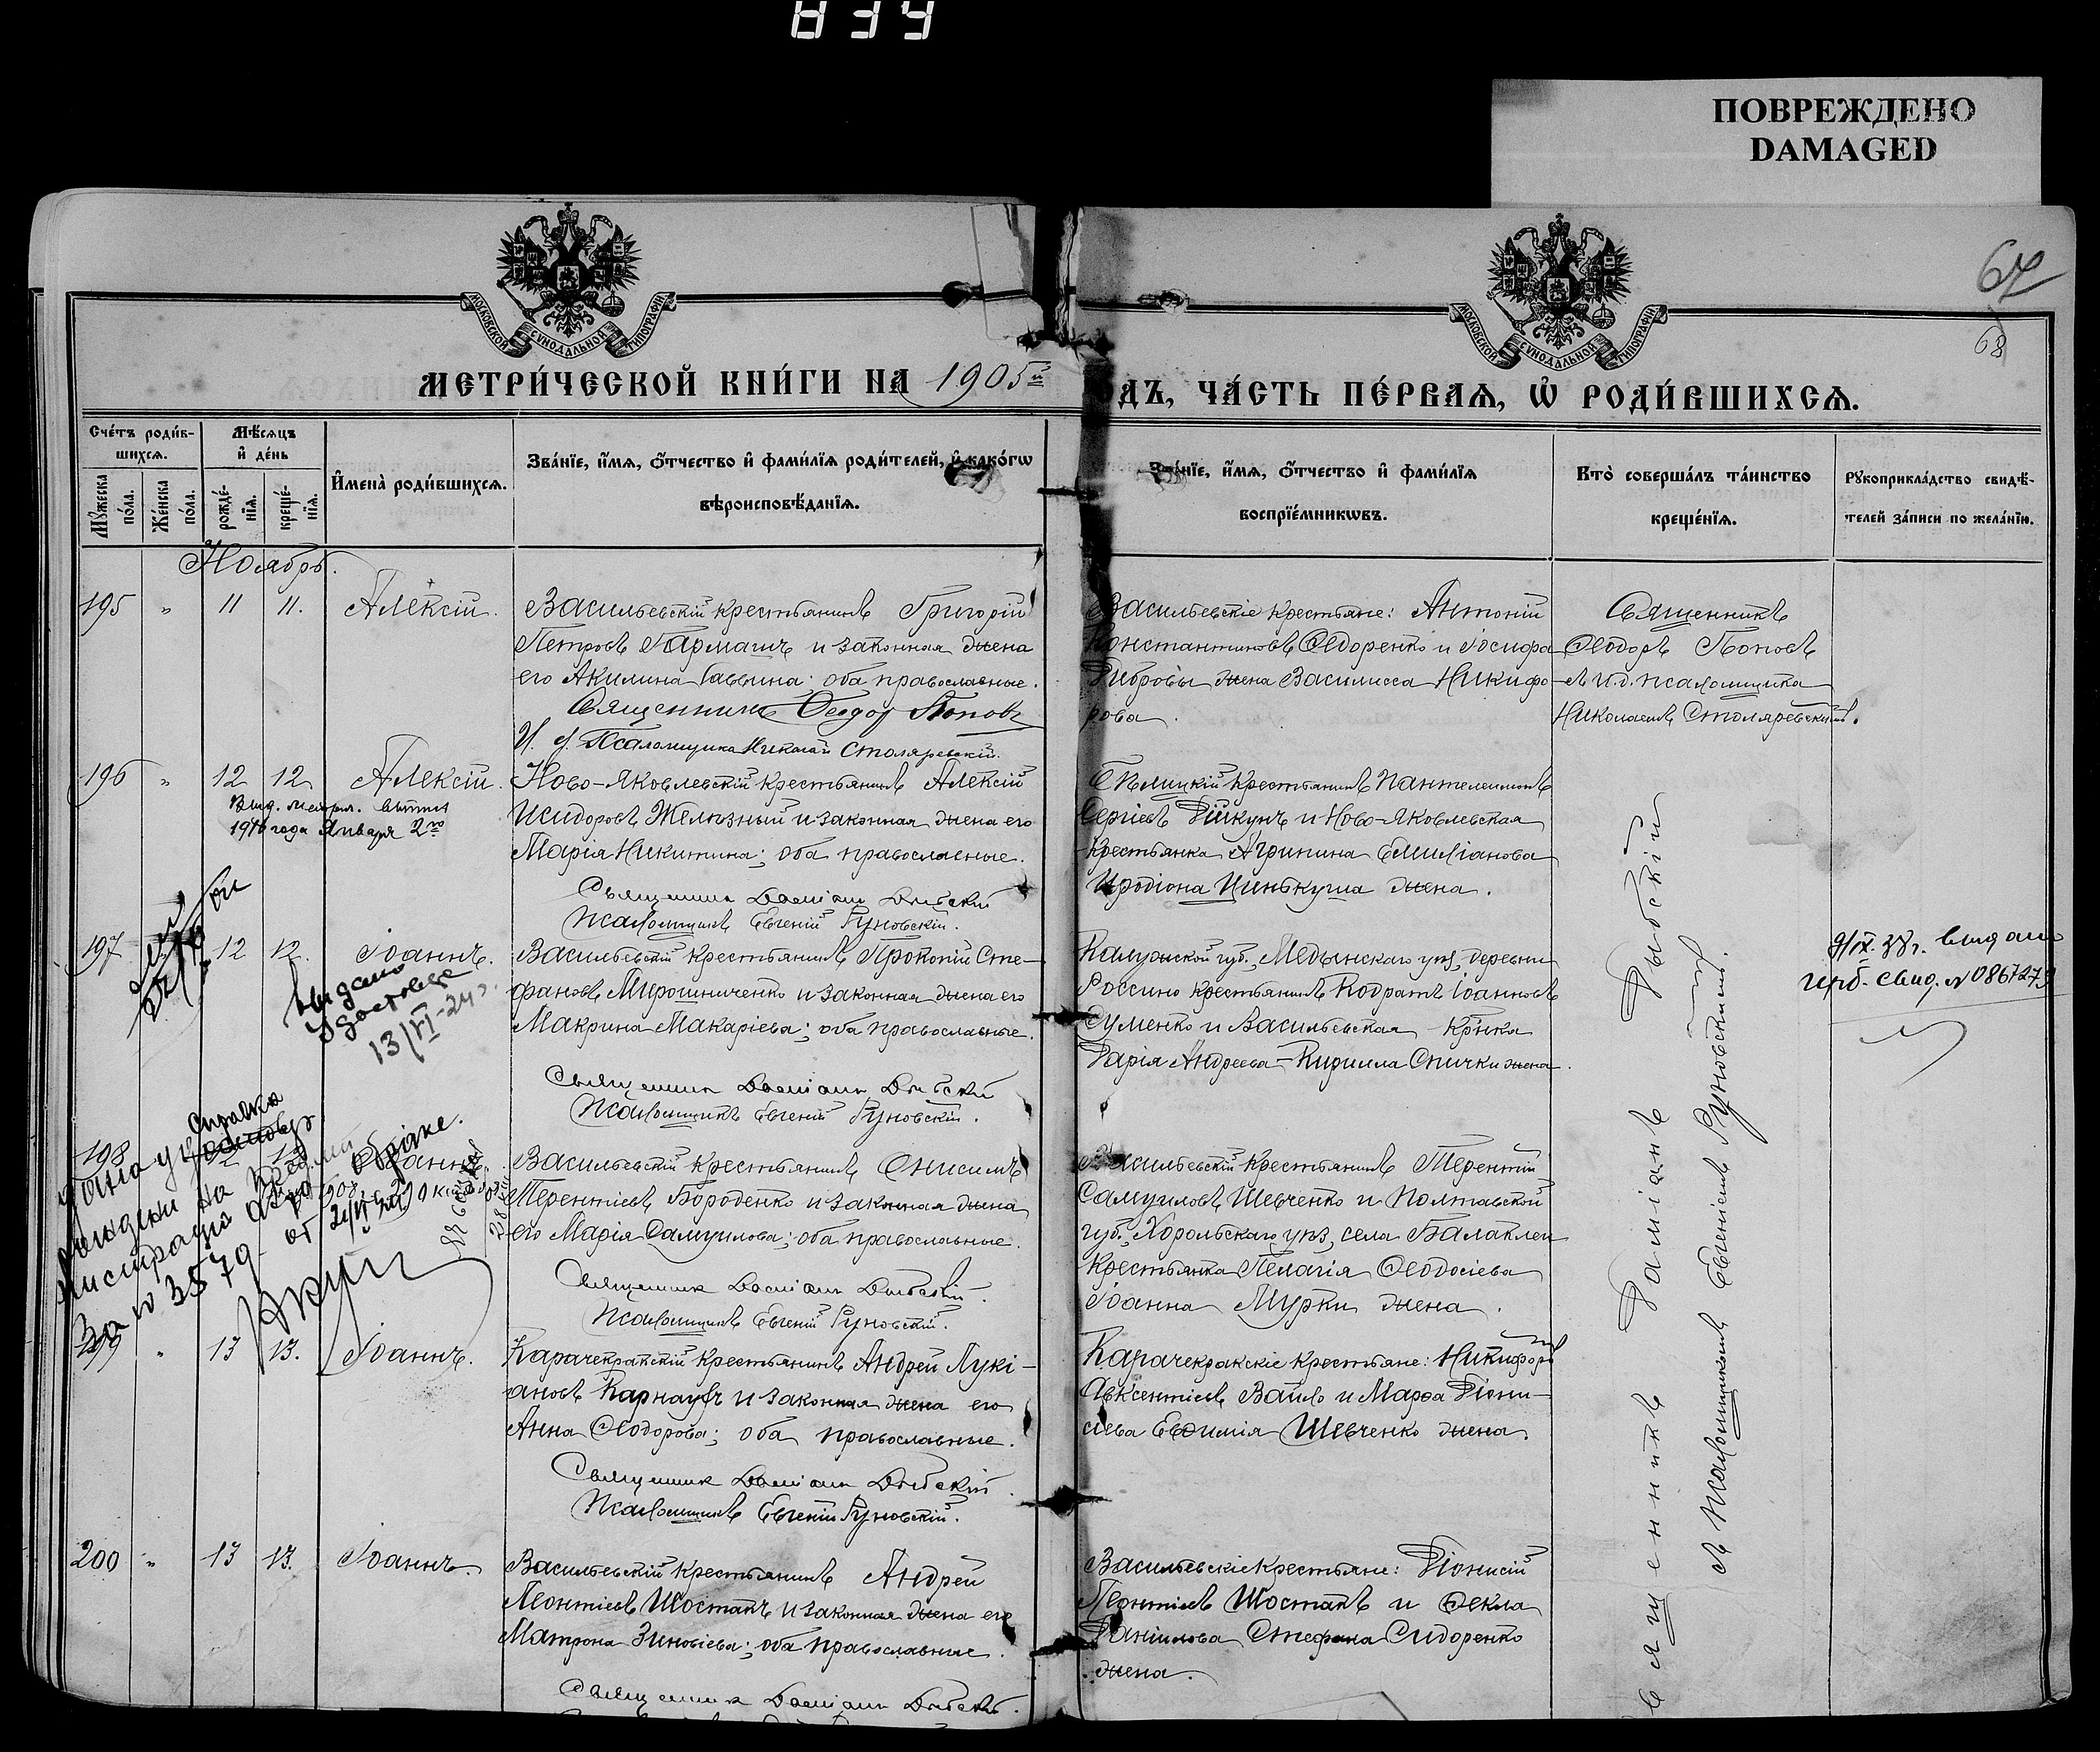 839
ПОВРЕЖДЕНО
DAMAGED
67
68
МОСКОВСКОЙ СѴНОДАЛЬНОЙ ТИПОГРАФІИ
МОСКОВСКОЙ СѴНОДАЛЬНОЙ ТИПОГРАФІИ
МЕТРИ́ЧЕСКОЙ КНИ́ГИ НА 1905й
ОДЪ, ЧА́СТЬ ПЕ́РВАѦ, Ѡ҆ РОДИ́ВШИХСѦ.
Сче́тъ роди́в-
шихсѧ.
Мꙋжеска по́ла.
Же́нска по́ла.
Мѣ́сѧцъ
и҆ де́нь
рожде́-нїѧ.
креще́-нїѧ.
И҆мена̀ роди́вшихсѧ.
Зва́нїе, и҆́мѧ, ѻ҆́тчество и҆ фами́лїѧ роди́телей, и҆ како́гѡ
вѣроисповѣ́данїѧ.
Зва́нїе, и҆́мѧ, ѻ҆́тчество и҆ фами́лїѧ
воспрїе́мникѡвъ.
Кто̀ соверша́лъ та́инство
креще́нїѧ.
Рꙋкоприкла́дство свидѣ́-
телей за́писи по жела́нїю.
Ноябрь.
195 " 11 11. Алексій.
Васильевскій крестьянинъ Григорій
Петровъ Гармашъ и законная жена
его Акилина Саввина: оба православные.
Священникъ Ѳеодоръ Поповъ
И. д. Псаломщика Николай Столяревскій.
Васильевскіе крестьяне: Антоній
Константиновъ Ѳедоренко и Іосифа
Дибровы жена Василисса Никифо-
рова.
Священникъ
Ѳеодоръ Поповъ
съ и.д. псаломщика
Николаемъ Столяревскимъ.
196 " 12 12 Алексій.
Выд. метрич. выпись
года Января 2го
Ново-Яковлевскій крестьянинъ Алексій
Исидоровъ Желѣзный и законная жена его
Марія Никитина; оба православные.
Священникъ Даміанъ Дыбскій
Псаломщикъ Евгеній Руновскій.
крестьянинъ Пантелеимонъ
Сергіевъ Дикунъ и Ново-Яковлевская
крестьянка Агрипина Емиліанова
Иродіона жена.
197 " 12 12. Іоаннъ.
Выдано
13/VI-24г.
Васильевскій крестьянинъ Прокопій Сте-
фановъ Мирошниченко и законная жена его
Макрина Макаріева; оба православные.
Священникъ Даміанъ Дыбскій
Псаломщикъ Евгеній Руновскій.
Калужской губ., Медынскаго уѣз., деревни
Россино крестьянинъ Кодратъ Іоанновъ
Суменко и Васильевская кр-нка
Дарія Андреева - Кирилла Спички жена.
9/IX.38г. выдано
герб. свид. № 086727
198 Іоаннъ
Справка
За № 3579
Васильевскій крестьянинъ Онисимъ
Терентіевъ Бороденко и законная жена
его Марія Самуилова; оба православные.
Священникъ Даміанъ Дыбскій.
Псаломщикъ Евгеній Руновскій.
Васильевскій крестьянинъ Терентій
Самуиловъ Шевченко и Полтавской
губ., Хорольскаго уѣз., села Балаклеи
крестьянка Пелагія Ѳеодосіева
Іоанна Мурки жена.
199 " 13 13. Іоаннъ.
Карачекракскій крестьянинъ Андрей Лукі-
ановъ Карнаухъ и законная жена его
Анна Ѳеодорова; оба православные.
Священникъ Даміанъ Дыбскій.
Псаломщикъ Евгеній Руновскій.
Карачекракскіе крестьяне: Никифоръ
Авксентіевъ Вайло и Марѳа Діони-
сіева Евѳимія Шевченко жена.
200 " 13 13. Іоаннъ.
Васильевскій крестьянинъ Андрей
Леонтіевъ Шостакъ и законная жена его
Матрона Зиновіева; оба православные.
Священникъ Даміанъ Дыбскій.
Васильевскіе крестьяне: Діонисій
Леонтіевъ Шостакъ и Ѳекла
Даніилова Стефана Сидоренко
жена.
Священникъ Даміанъ Дыбскій
съ псаломщикомъ Евгеніемъ Руновскимъ.